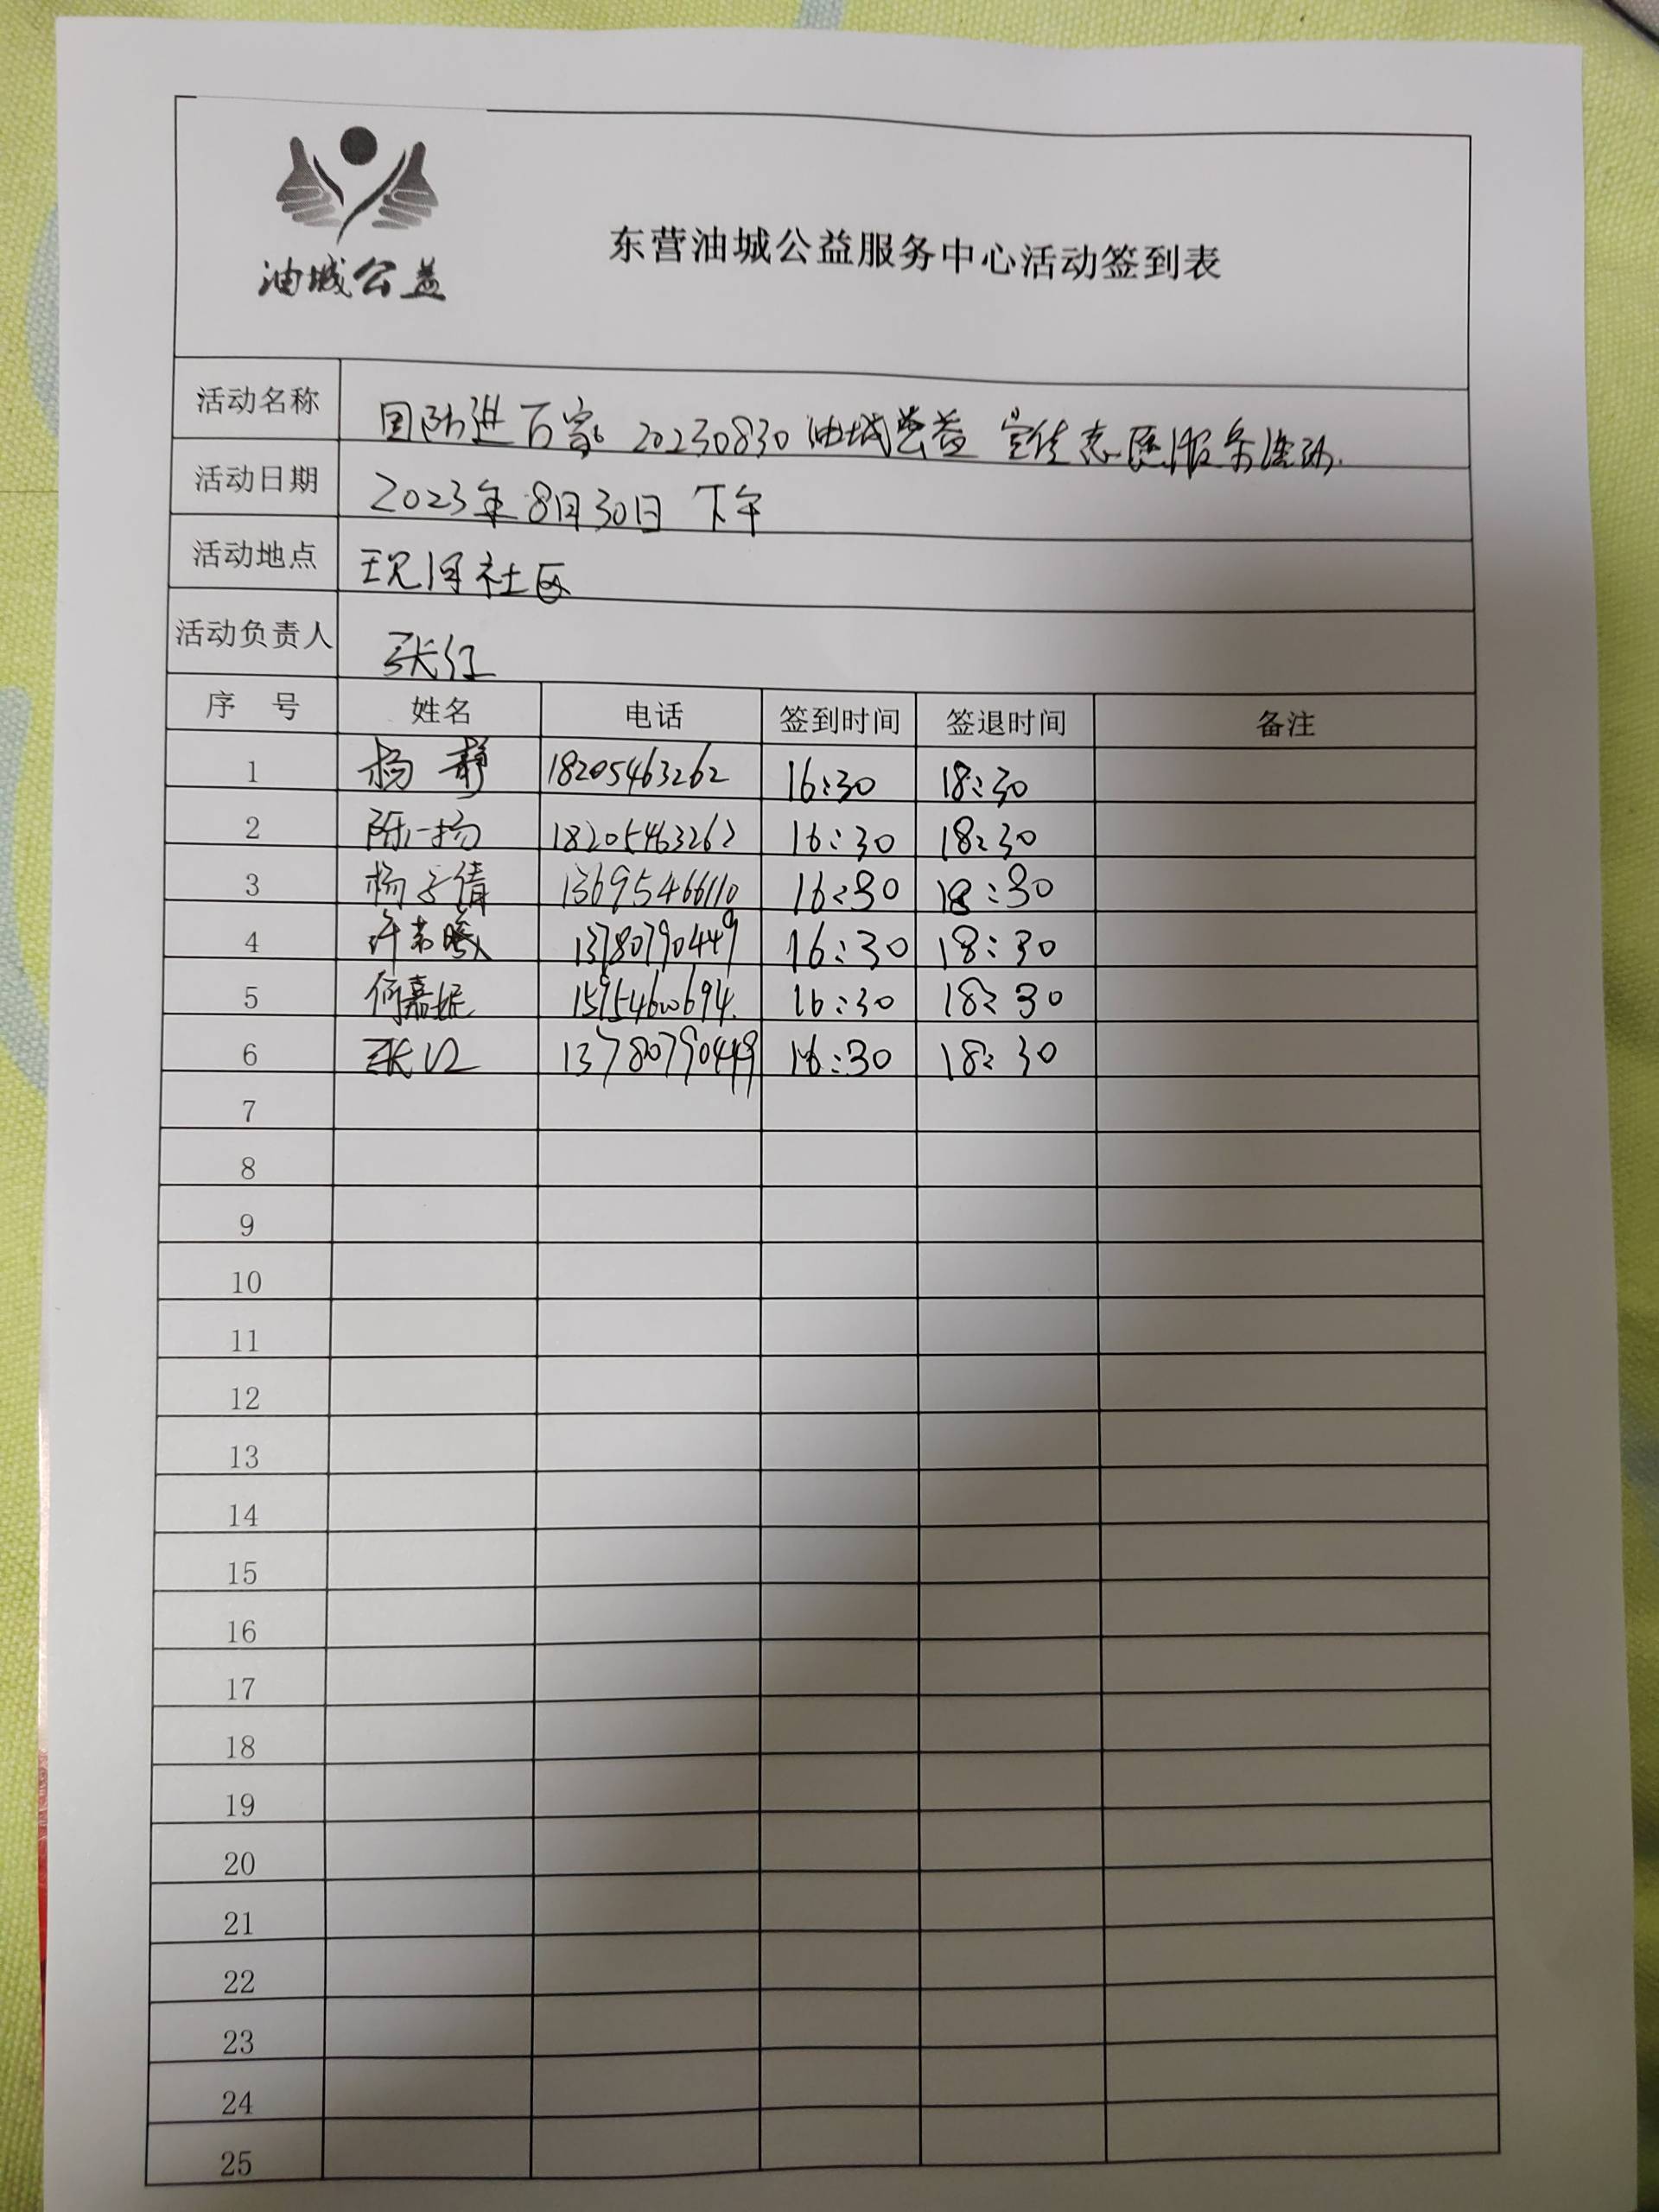 油城公益
东营油城公益服务中心活动签到表
活动名称 团队进百家 20230830 油城公益 宣传志愿服务活动.
活动日期 2023年8月30日 下午
活动地点 现河社区
活动负责人 张红
序 号 姓名 电话 签到时间 签退时间 备注
1 杨静 18205463262 16:30 18:30
2 陈一扬 18205463262 16:30 18:30
3 杨子倩 13695466110 16:30 18:30
4 许若曦 13780790449 16:30 18:30
5 何嘉妮 15954600694. 16:30 18:30
6 张红 13780790449 16:30 18:30
7
8
9
10
11
12
13
14
15
16
17
18
19
20
21
22
23
24
25